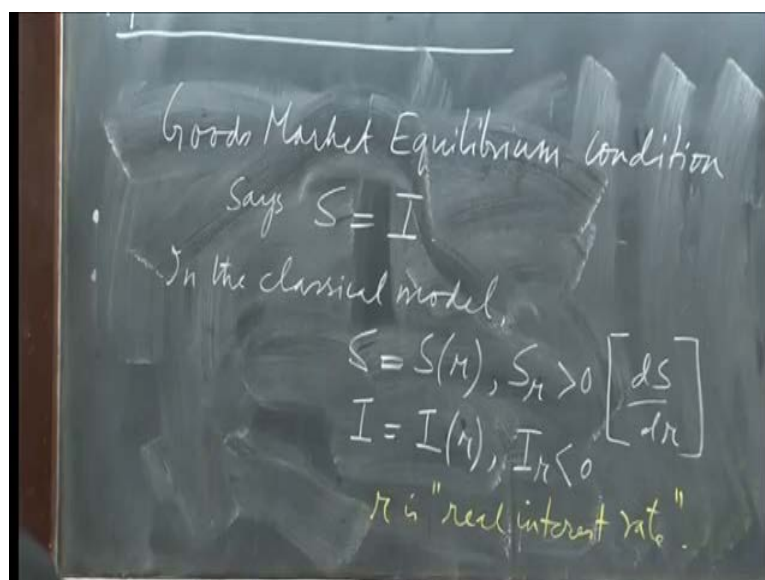 Goods Market Equilibrium condition
Says S = I.
In the classical model,
S = S(r), S_r > 0 [dS/dr]
I = I(r), I_r < 0
r is "real interest rate".